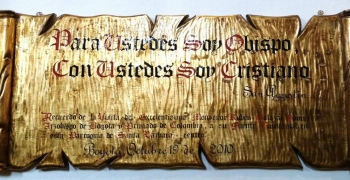 Para Ustedes Soy Obispo,
Con Ustedes Soy Cristiano
San Agustín
Recuerdo de la Visita del Excelentísimo Monseñor Rubén
Arzobispo de Bogotá y Primado de Colombia, a su
Parroquia de Santa
Bogotá, Octubre 19 de 2010